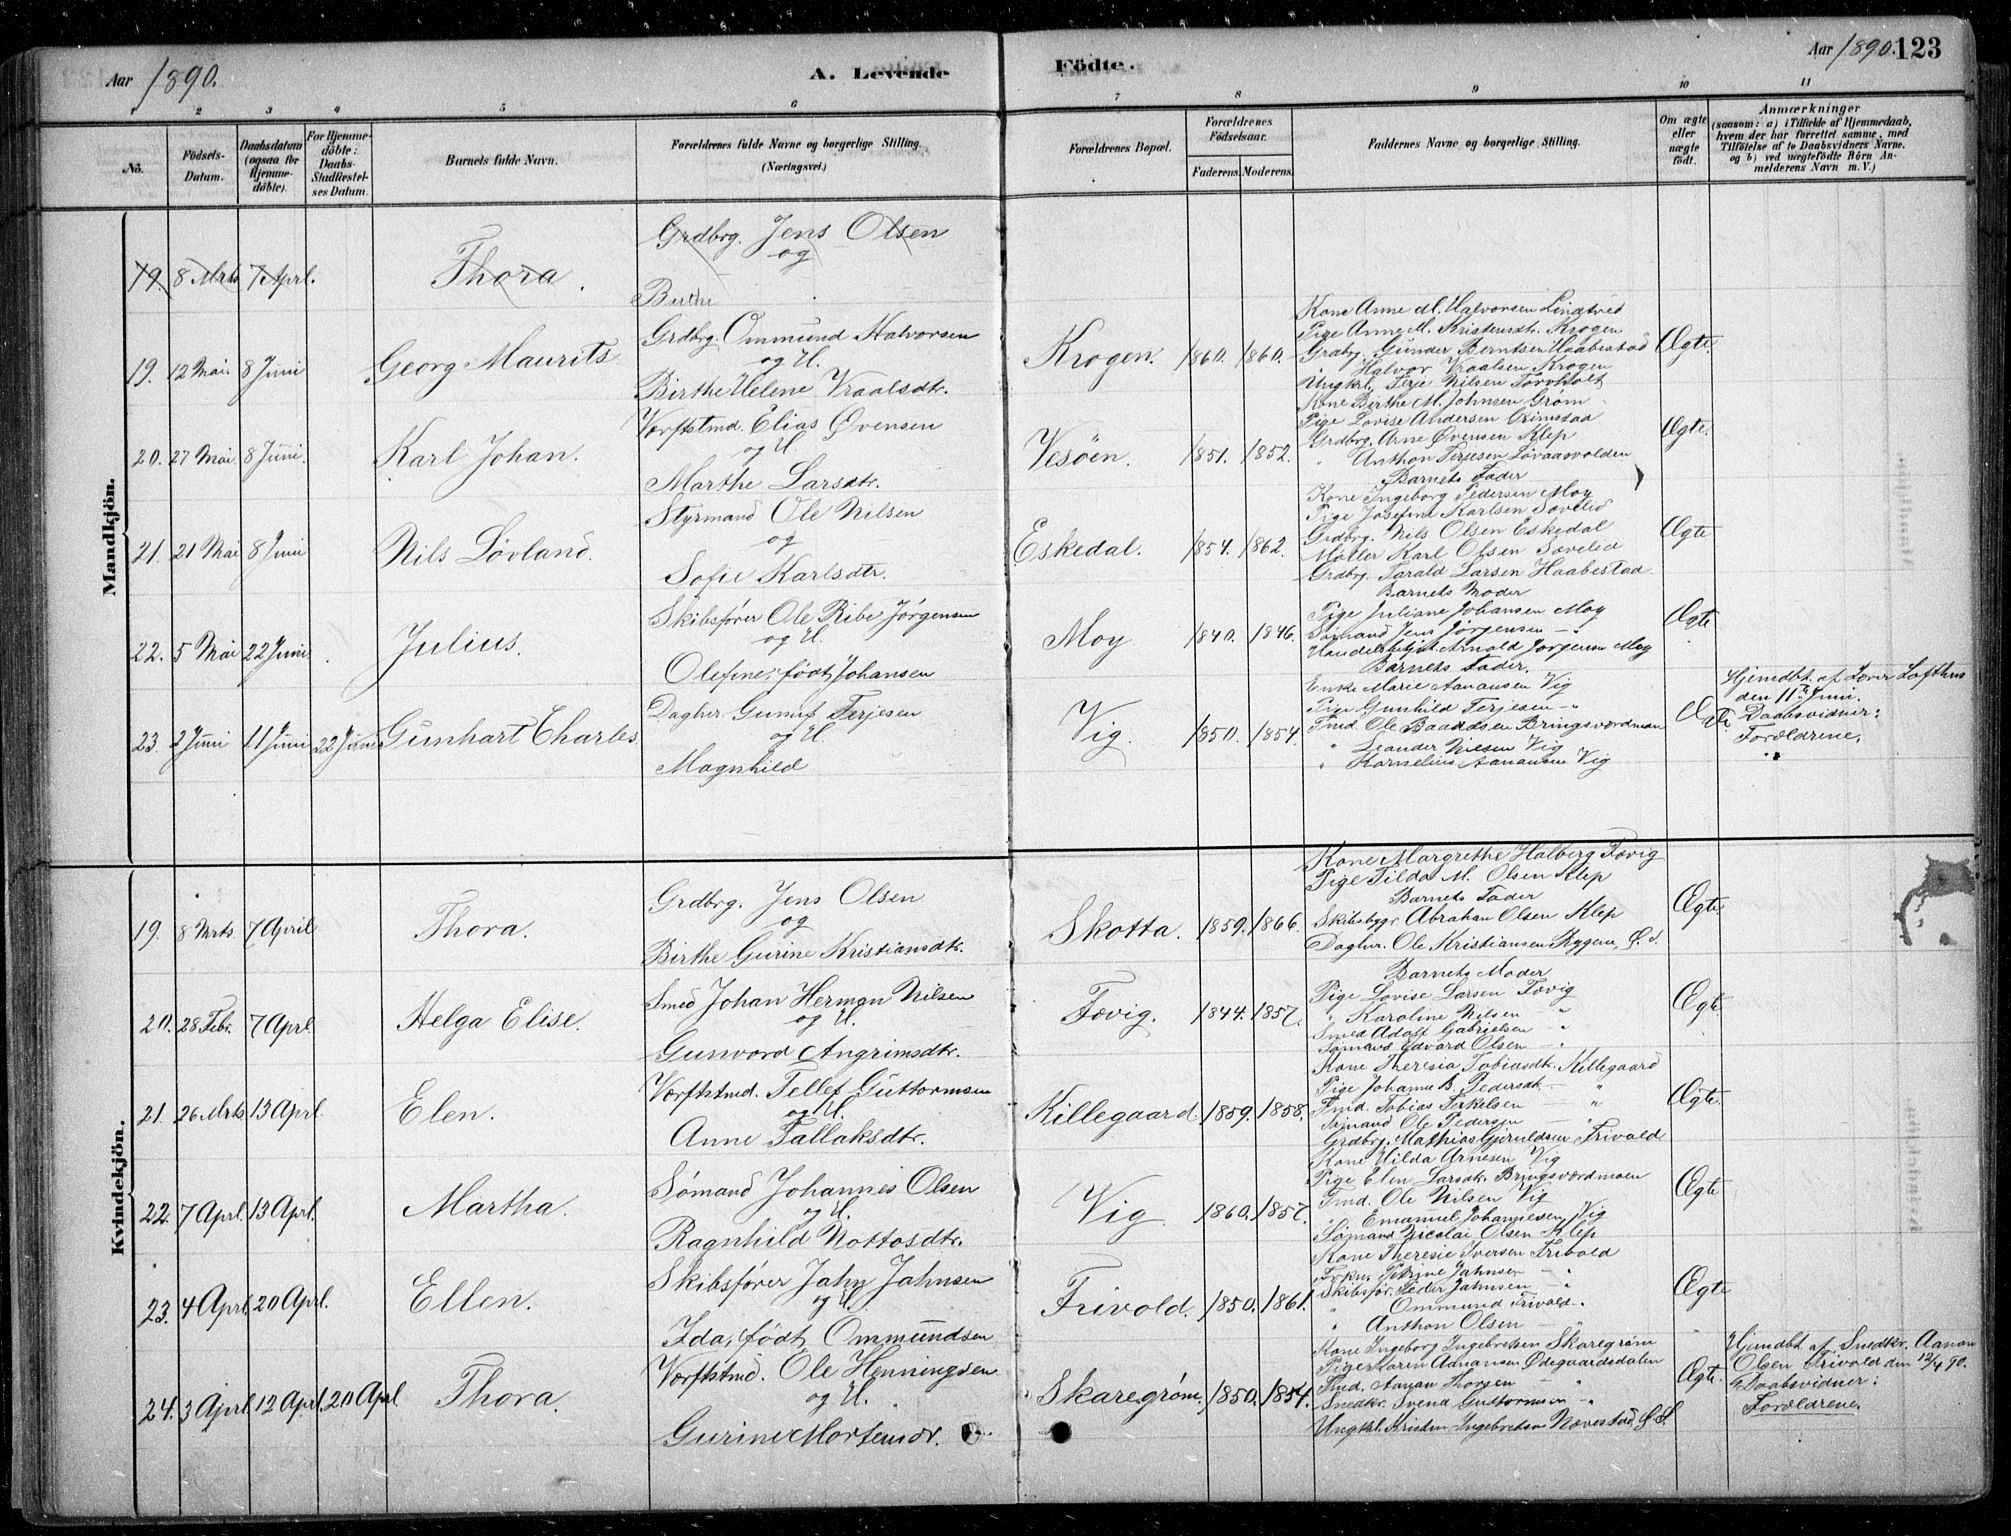 Aar 1890.
A. Levende Födte.
Aar 1890. 123
1 2 3 4 5 6 7 8 9 10 11
No.
Födsels-Datum.
Daabsdatum (ogsaa for Hjemmedöbte).
For Hjemmedöbte: Daabs-Stadfæstelses Datum.
Barnets fulde Navn.
Forældrenes fulde Navne og borgerlige Stilling. (Næringsvei.)
Forældrenes Bopæl.
Forældrenes Födselsaar. Faderens. Moderens.
Faddernes Navne og borgerlige Stilling.
Om ægte eller uægte födt.
Anmærkninger (saasom: a) i Tilfælde af Hjemmedaab, hvem der har forrettet samme, med Tilföielse af to Daabsvidners Navne, og b) ved uægtefödte Börn Anmelderens Navn m. V.)
Mandkjön.
19. 8 Mrts 7 Aprl. Thora.
Grdbrg. Jens Olsen
og
Birthe
19. 12 Mai. 8 Juni Georg Maurits
Grdbrg. Ommund Halvorsen
og H.
Birthe Helene Vraalsdtr.
Krogen. 1860. 1860.
Kone Anne M. Halvorsen Lindtved
Pige Anne M. Kristensdtr. Krogen
Grdbrg. Gunder Berntsen Haabestad
" Halvor Vraalsen Krogen
Ungkrl. Terje Nilsen Torvholt
Ægte.
20. 27 Mai 8 Juni. Karl Johan.
Værftstmd. Elias Øvensen
og H.
Marthe Larsdtr.
Vesöen. 1851. 1852.
Kone Birthe M. Johnsen Grom
Pige Lovise Andersen Grimstad
Grdbrg. Arne Øvensen Klep
" Anthon Terjesen Løvaasvolden
Barnets Fader
Ægte.
21. 21 Mai 8 Juni Nils Løvland.
Styrmand Ole Nilsen
og
Sofie Karlsdtr.
Eskedal. 1854. 1862.
Kone Ingeborg Pedersen Moy
Pige Josefine Karlsen Sævelid
Grdbrg. Nils Olsen Eskedal
Møller Karl Olsen Sævelid
Grdbrg. Tarald Larsen Haabestad
Ægte
22. 5 Mai 22 Juni. Julius.
Skibsfører Ole Ribe Jørgensen
og H.
Olefine, født Johansen
Moy 1840. 1846.
Barnets Moder
Pige Juliane Johansen Moy
Sømand Jens Jørgensen – "
Arnold Jørgensen Moy
Barnets Fader.
Ægte
23. 2 Juni 11 Juni 22 Juni Gunhart Charles
Daglnr. Gunuf Terjesen
og H.
Magnhild
Vig. 1850. 1854.
Enke Marie Aanansen Vig
Pige Gunhild Terjesen – "
Tmd. Ole Baardsen Bringsværdmoen
" Leander Nilsen Vig
" Kornelius Aanansen Vig
Ægte
Hjemdbt. af Lærer Lofthus
den 11te Juni.
Daabsvidner:
Forældrene.
Kvindekjön.
19. 8 Mrts. 7 April Thora.
Grdbrg. Jens Olsen
og
Birthe Gurine Kristiansdtr.
Skotta. 1859. 1866.
Kone Margrethe Halberg Fævig
Pige Tilda M. Olsen Klep
Barnets Fader
Skibsbygr. Abrahan Olsen Klep
Daglnr. Ole Kristiansen Rygene,
Ægte
20. 28 Febr. 7 Aprl. Helga Elise.
Smed Johan Herman Nilsen
og H.
Gunvord Angrimsdtr.
Fævig. 1844. 1857.
Barnets Moder
Pige Lovise Larsen Fævig
" Karoline Nilsen "
Smed Adolf Gabrielsen – "
Sømand Edvard Olsen – "
Ægte
21. 26 Mrts 13 Aprl. Elen.
Værftstmd. Tellef Guttormsen
og H.
Anne Tallaksdtr.
Killegaard. 1859. 1858.
Kone Theresia Tobiasdtr. Killegaard
Pige Johanne B. Pedersdtr. – "
Tmd. Tobias Terkelsen – "
Sømand Ole Pedersen – "
Grdbrg. Mathias Gjeruldsen Frivold
Ægte.
22. 7 Aprl. 13 Aprl. Martha.
Sømand Johannes Olsen
og H.
Ragnhild Nottosdtr.
Vig 1860. 1857.
Kone Hilda Arnesen Vig
Pige Elen Larsdtr. Bringsværdmoen
Tmd. Ole Nilsen Vig
" Emanuel Johannesen Vig
Sømand Nicolai Olsen Klep
Ægte
23. 4 Aprl. 20 Aprl. Ellen.
Skibsfører Jahn Jahnsen
og H.
Ida, født Ommundsen
Frivold. 1850. 1861.
Kone Theresie Iversen Frivold
Frkn. Petrine Jahnsen – "
Skibsfør. Peder Jahnsen – "
" Ommund Frivold – "
" Anthon Olsen – "
Ægte
24. 3 Aprl. 12 Aprl. 20 Aprl. Thora.
Værftstmd. Ole Henningsen
og H.
Gurine Mortensdr.
Skaregrøm. 1850. 1854.
Kone Ingeborg Ingebretsen Skaregrøm
Pige Karen Aanansen Ødegaardsdalen
Tmd. Aanan Thorsen – "
Snedkr. Svend Guttormsen – "
Ungkrl. Kristen Ingebretsen Nævestad,
Ægte.
Hjemdbt. af Snedkr. Aanan
Olsen Frivold den 12/4 90.
Daabsvidner:
Forældrene.